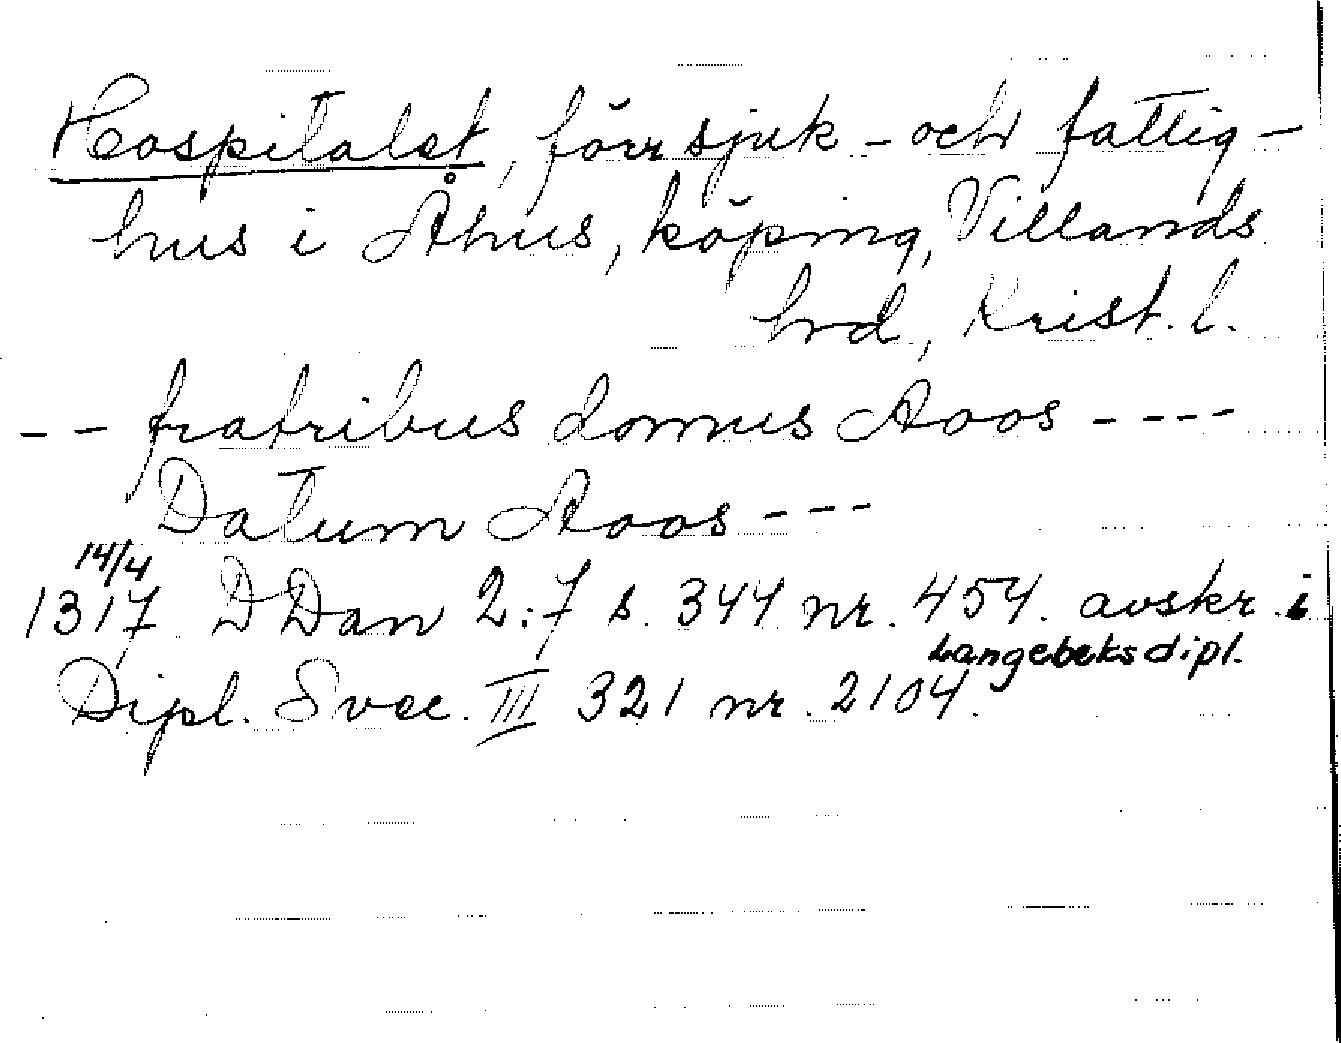 Hospitalet, förr sjuk- och fattig-
hus i Åhus, köping, Villands
hrd, Krist. l.
-- fratribus domus Aoos ----
Datum Aoos ---
14/4
1317 DDan 2:7 s. 344 nr. 454. avskr. i
Langebeks dipl.
Dipl. Svec. III 321 nr. 2104.